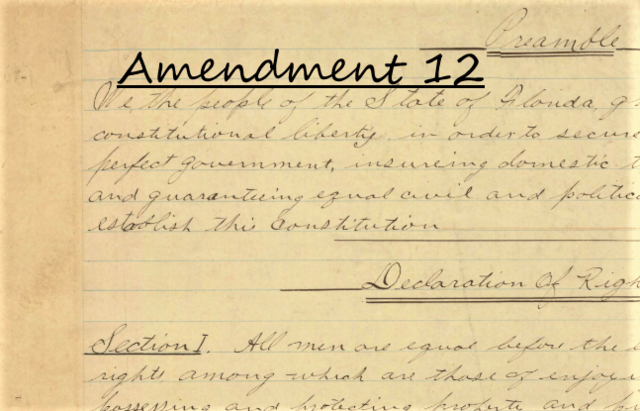 Preamble
Amendment 12
We the people of the State of Florida, g
constitutional liberty in order to secure
perfect government, insureing domestic t
and guaranteeing equal civil and politica
establish this Constitution
Declaration Of Righ
Section I. All men are equal before the
rights among which are those of enjoyi
possessing and protecting property and